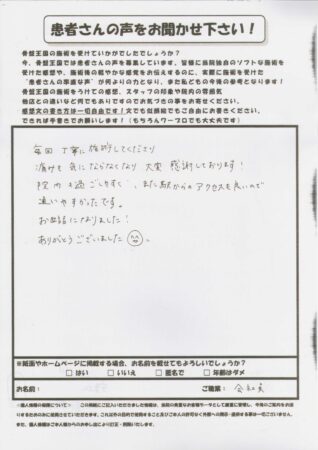 患者さんの声をお聞かせ下さい！
骨盤王国の施術を受けていかがでしたでしょうか？
今、骨盤王国では患者さんの声を募集しています。皆様に当院独自のソフトな施術を
受けた感想や、施術後の軽やかな感覚をお伝えするのに、実際に施術を受けた
“患者さんの率直な声”が何よりの力となり、また私どもの今後の参考となります！
骨盤王国の施術をうけての感想、スタッフの印象や院内の雰囲気
他店との違いなど何でもありですのでお気づきの事をお寄せください。
感想文の書き方は一切自由です！文でも似顔絵でもご自由にお書きください。
できれば手書きでお願いします！（もちろんワープロでも大丈夫です）
毎回丁寧に施術してくださり
痛みも気にならなくなり大変感謝しております！
院内も過ごしやすく、また駅からのアクセスも良いので
通いやすかったです。
お世話になりました！
ありがとうございました。
※紙面やホームページに掲載する場合、お名前を載せてもよろしいでしょうか？
□はい □いいえ □匿名で □年齢はダメ
お名前： ご職業： 会社員